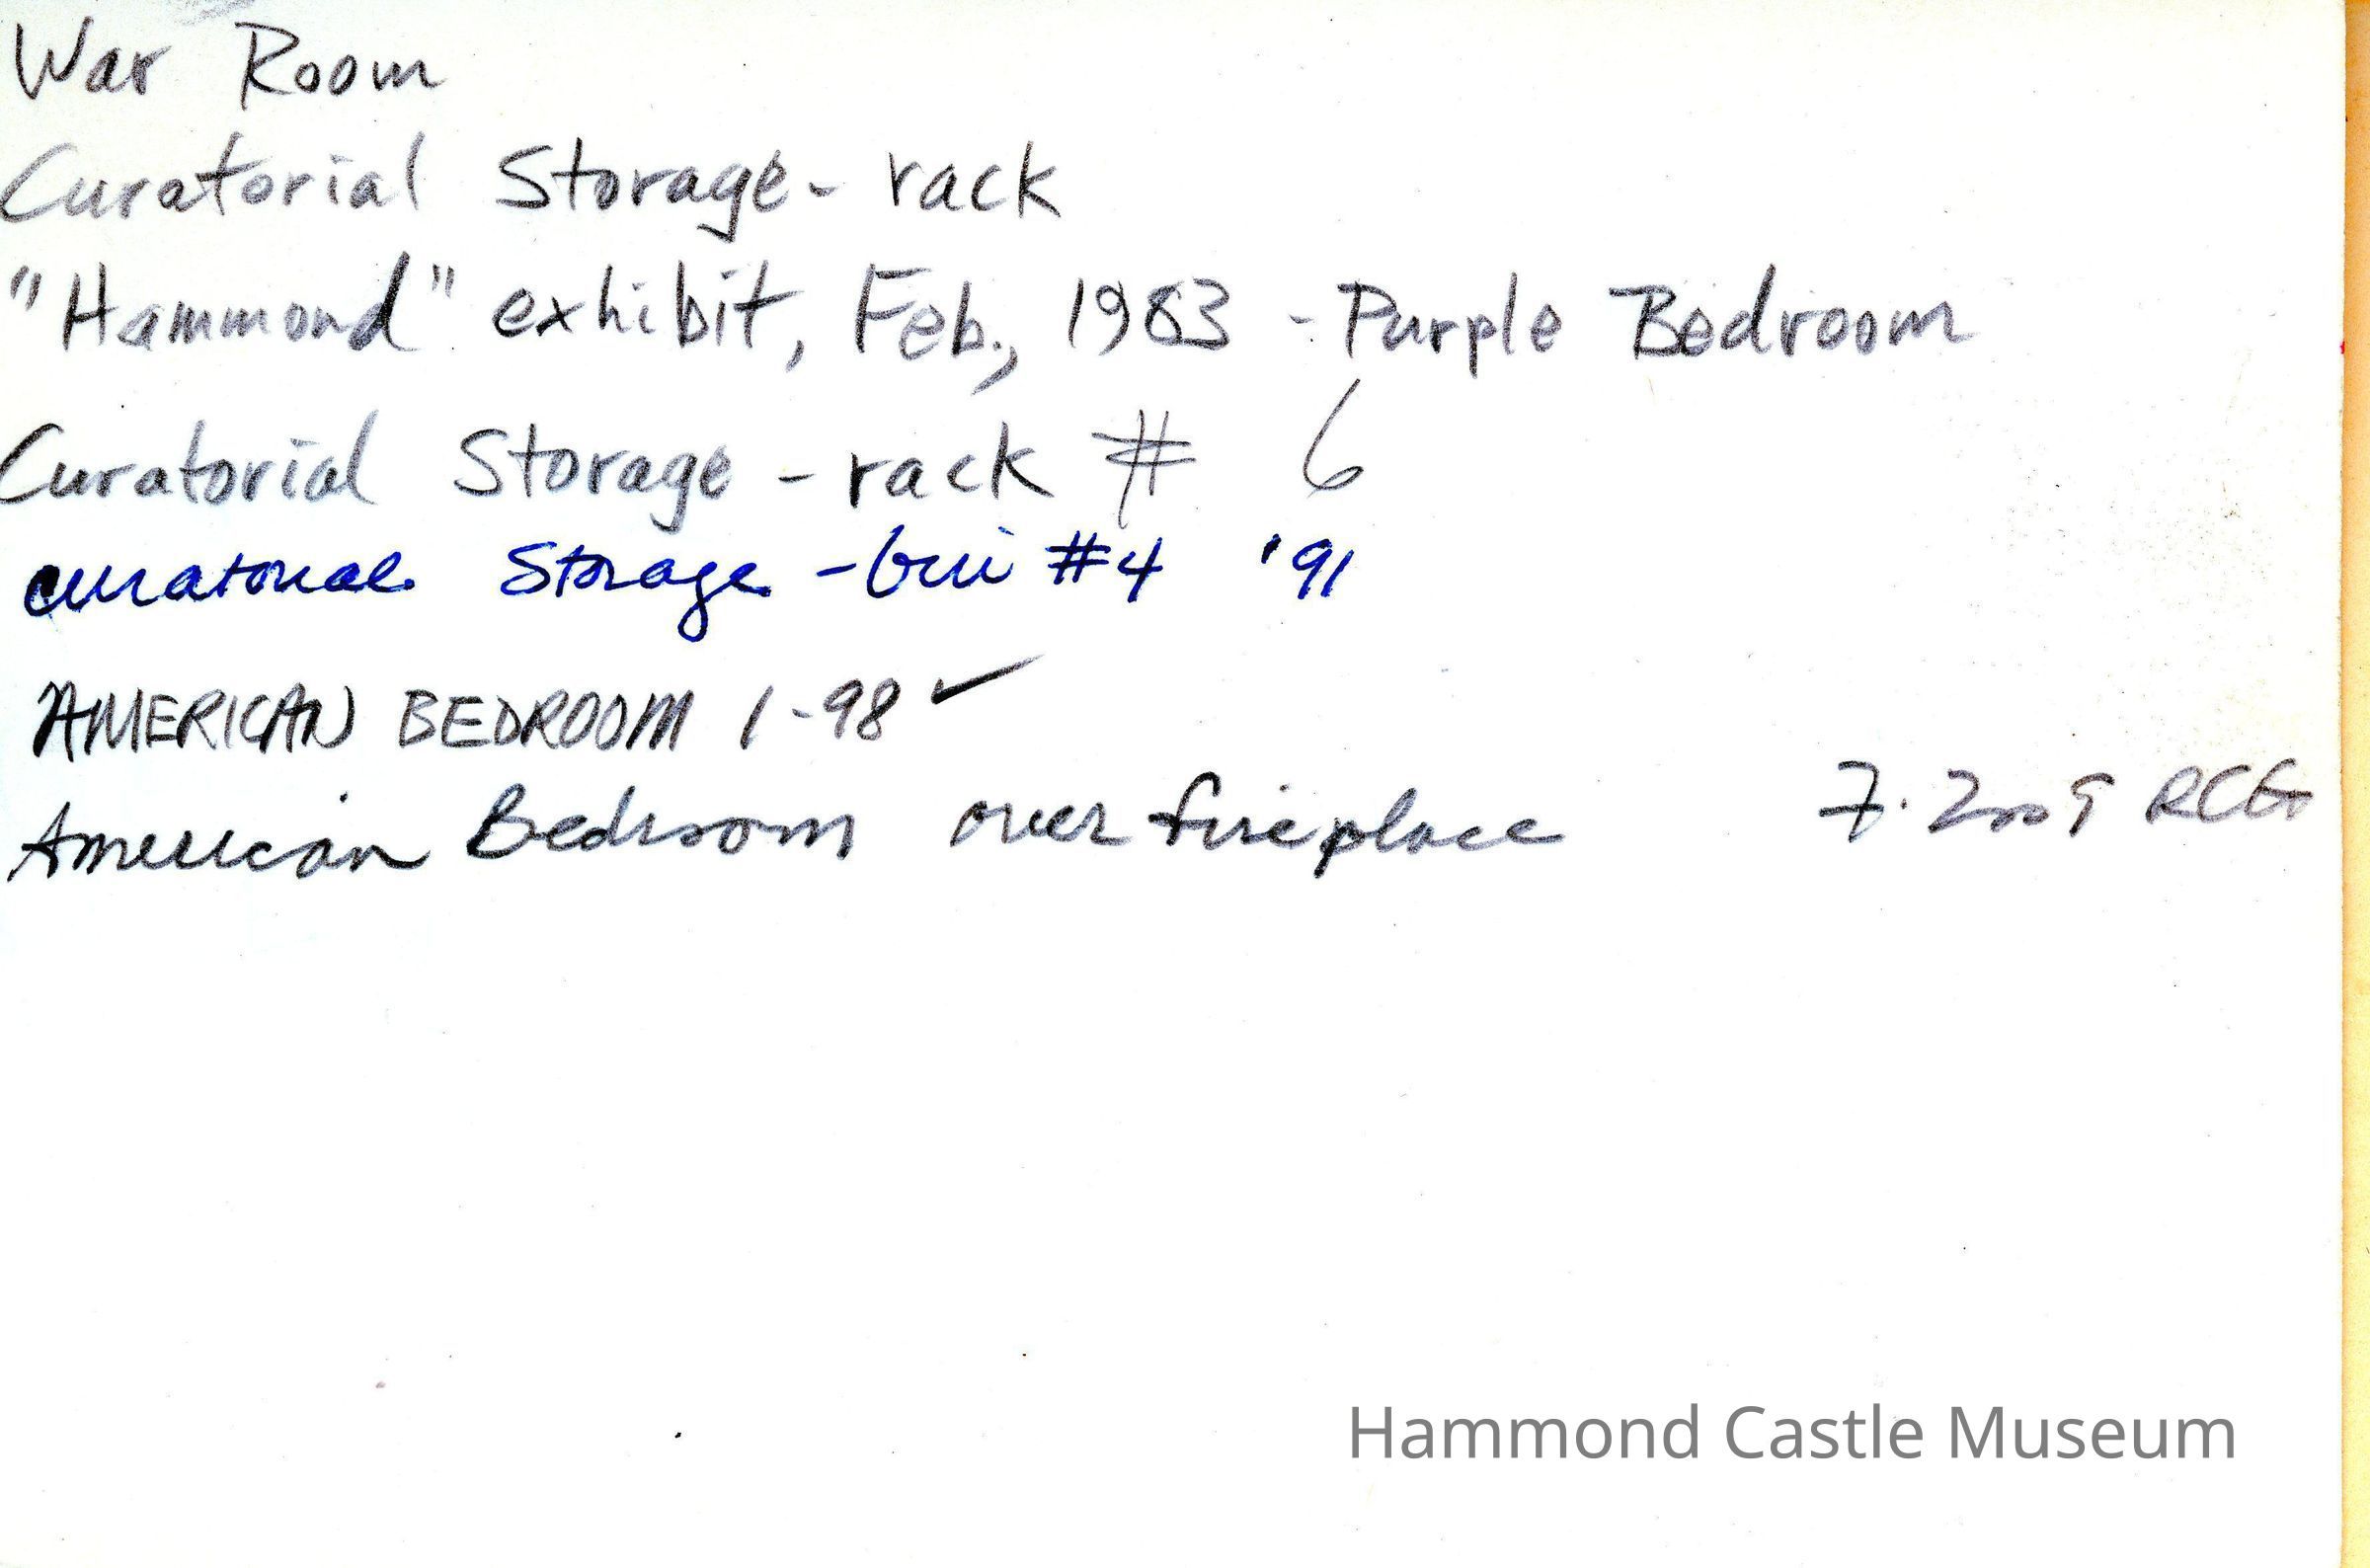 War Room
Curatorial Storage - rack
"Hammond" exhibit, Feb., 1983 - Purple Bedroom
Curatorial Storage - rack # 6
curatorial Storage - bin #4 '91
AMERICAN BEDROOM 1-98 ✓
American Bedroom over fireplace 7.2009 RCG
Hammond Castle Museum